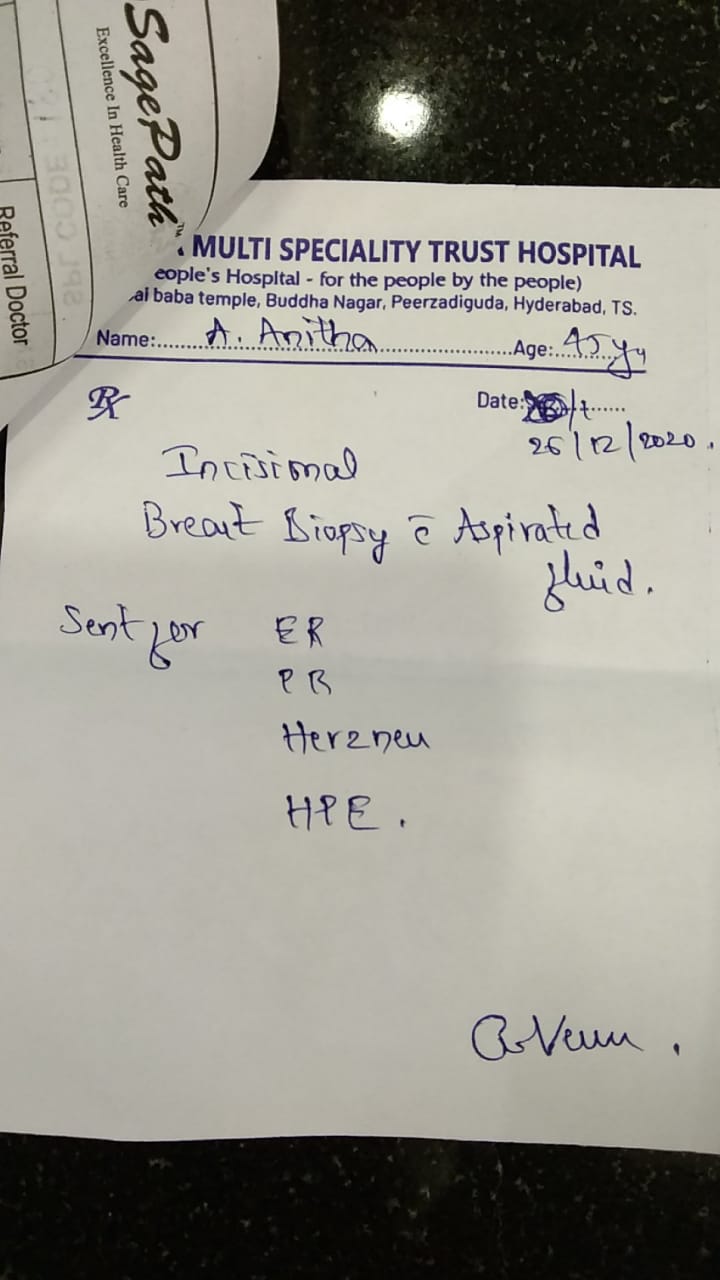 SagePath™
Excellence In Health Care
SPL CODE
Referral Doctor
MULTI SPECIALITY TRUST HOSPITAL
eople's Hospital - for the people by the people)
ai baba temple, Buddha Nagar, Peerzadiguda, Hyderabad, TS.
Name: A. Anitha Age: 45 yr
Rx
Date:
26/12/2020.
Incisional
Breast Biopsy c̄ Aspirated
fluid.
Sent for ER
PR
Her2neu
HPE.